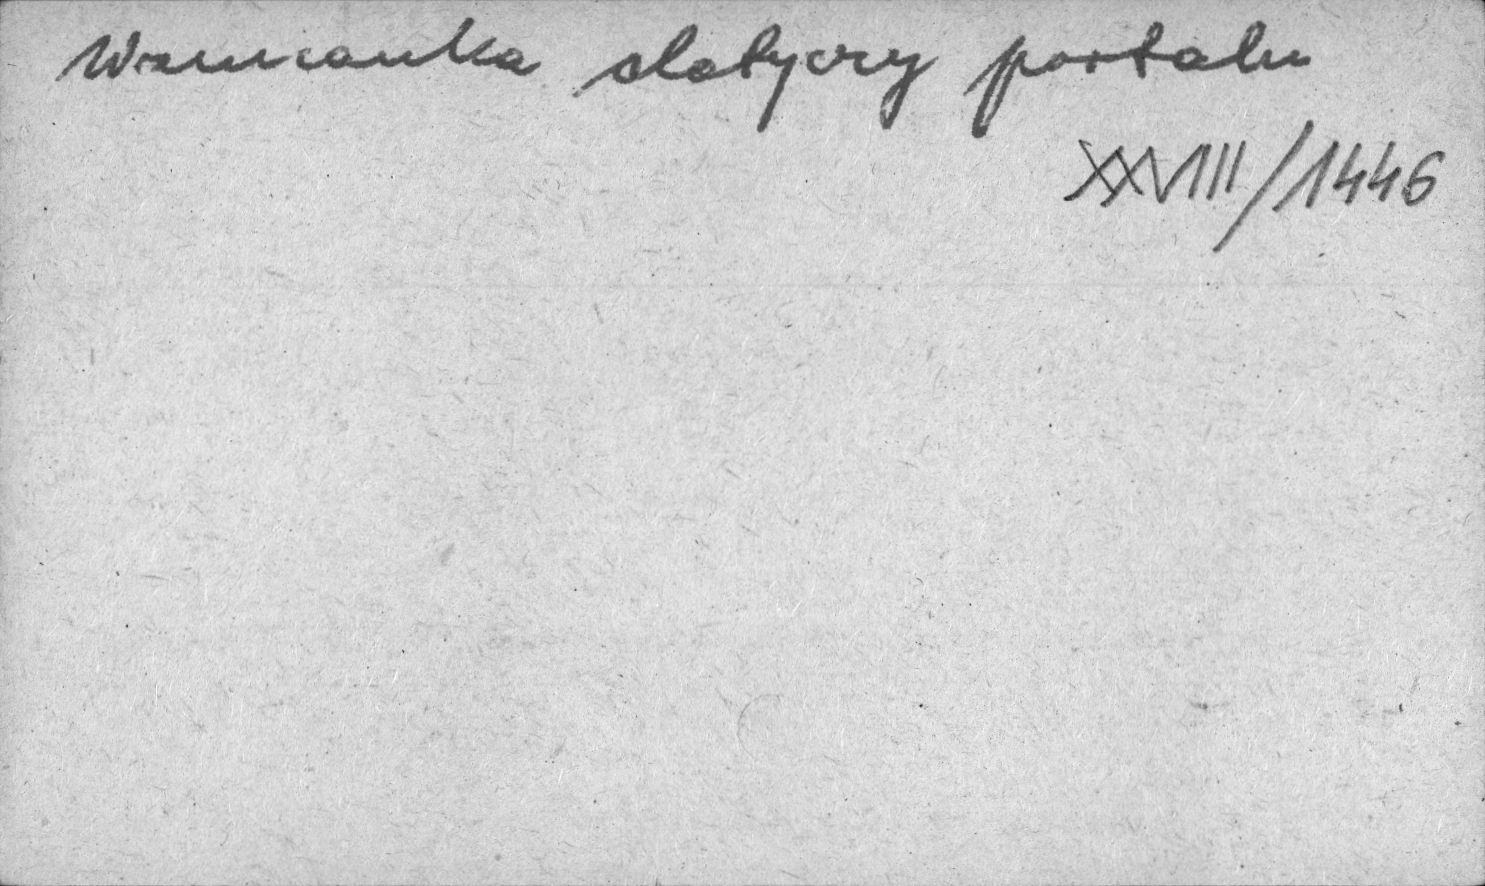 Wzmianka dotyczy portalu
XXVIII/1446